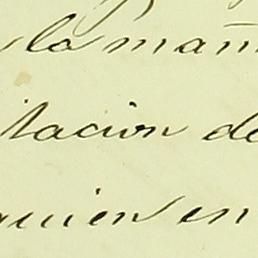 la mañ
tacion de
quien en